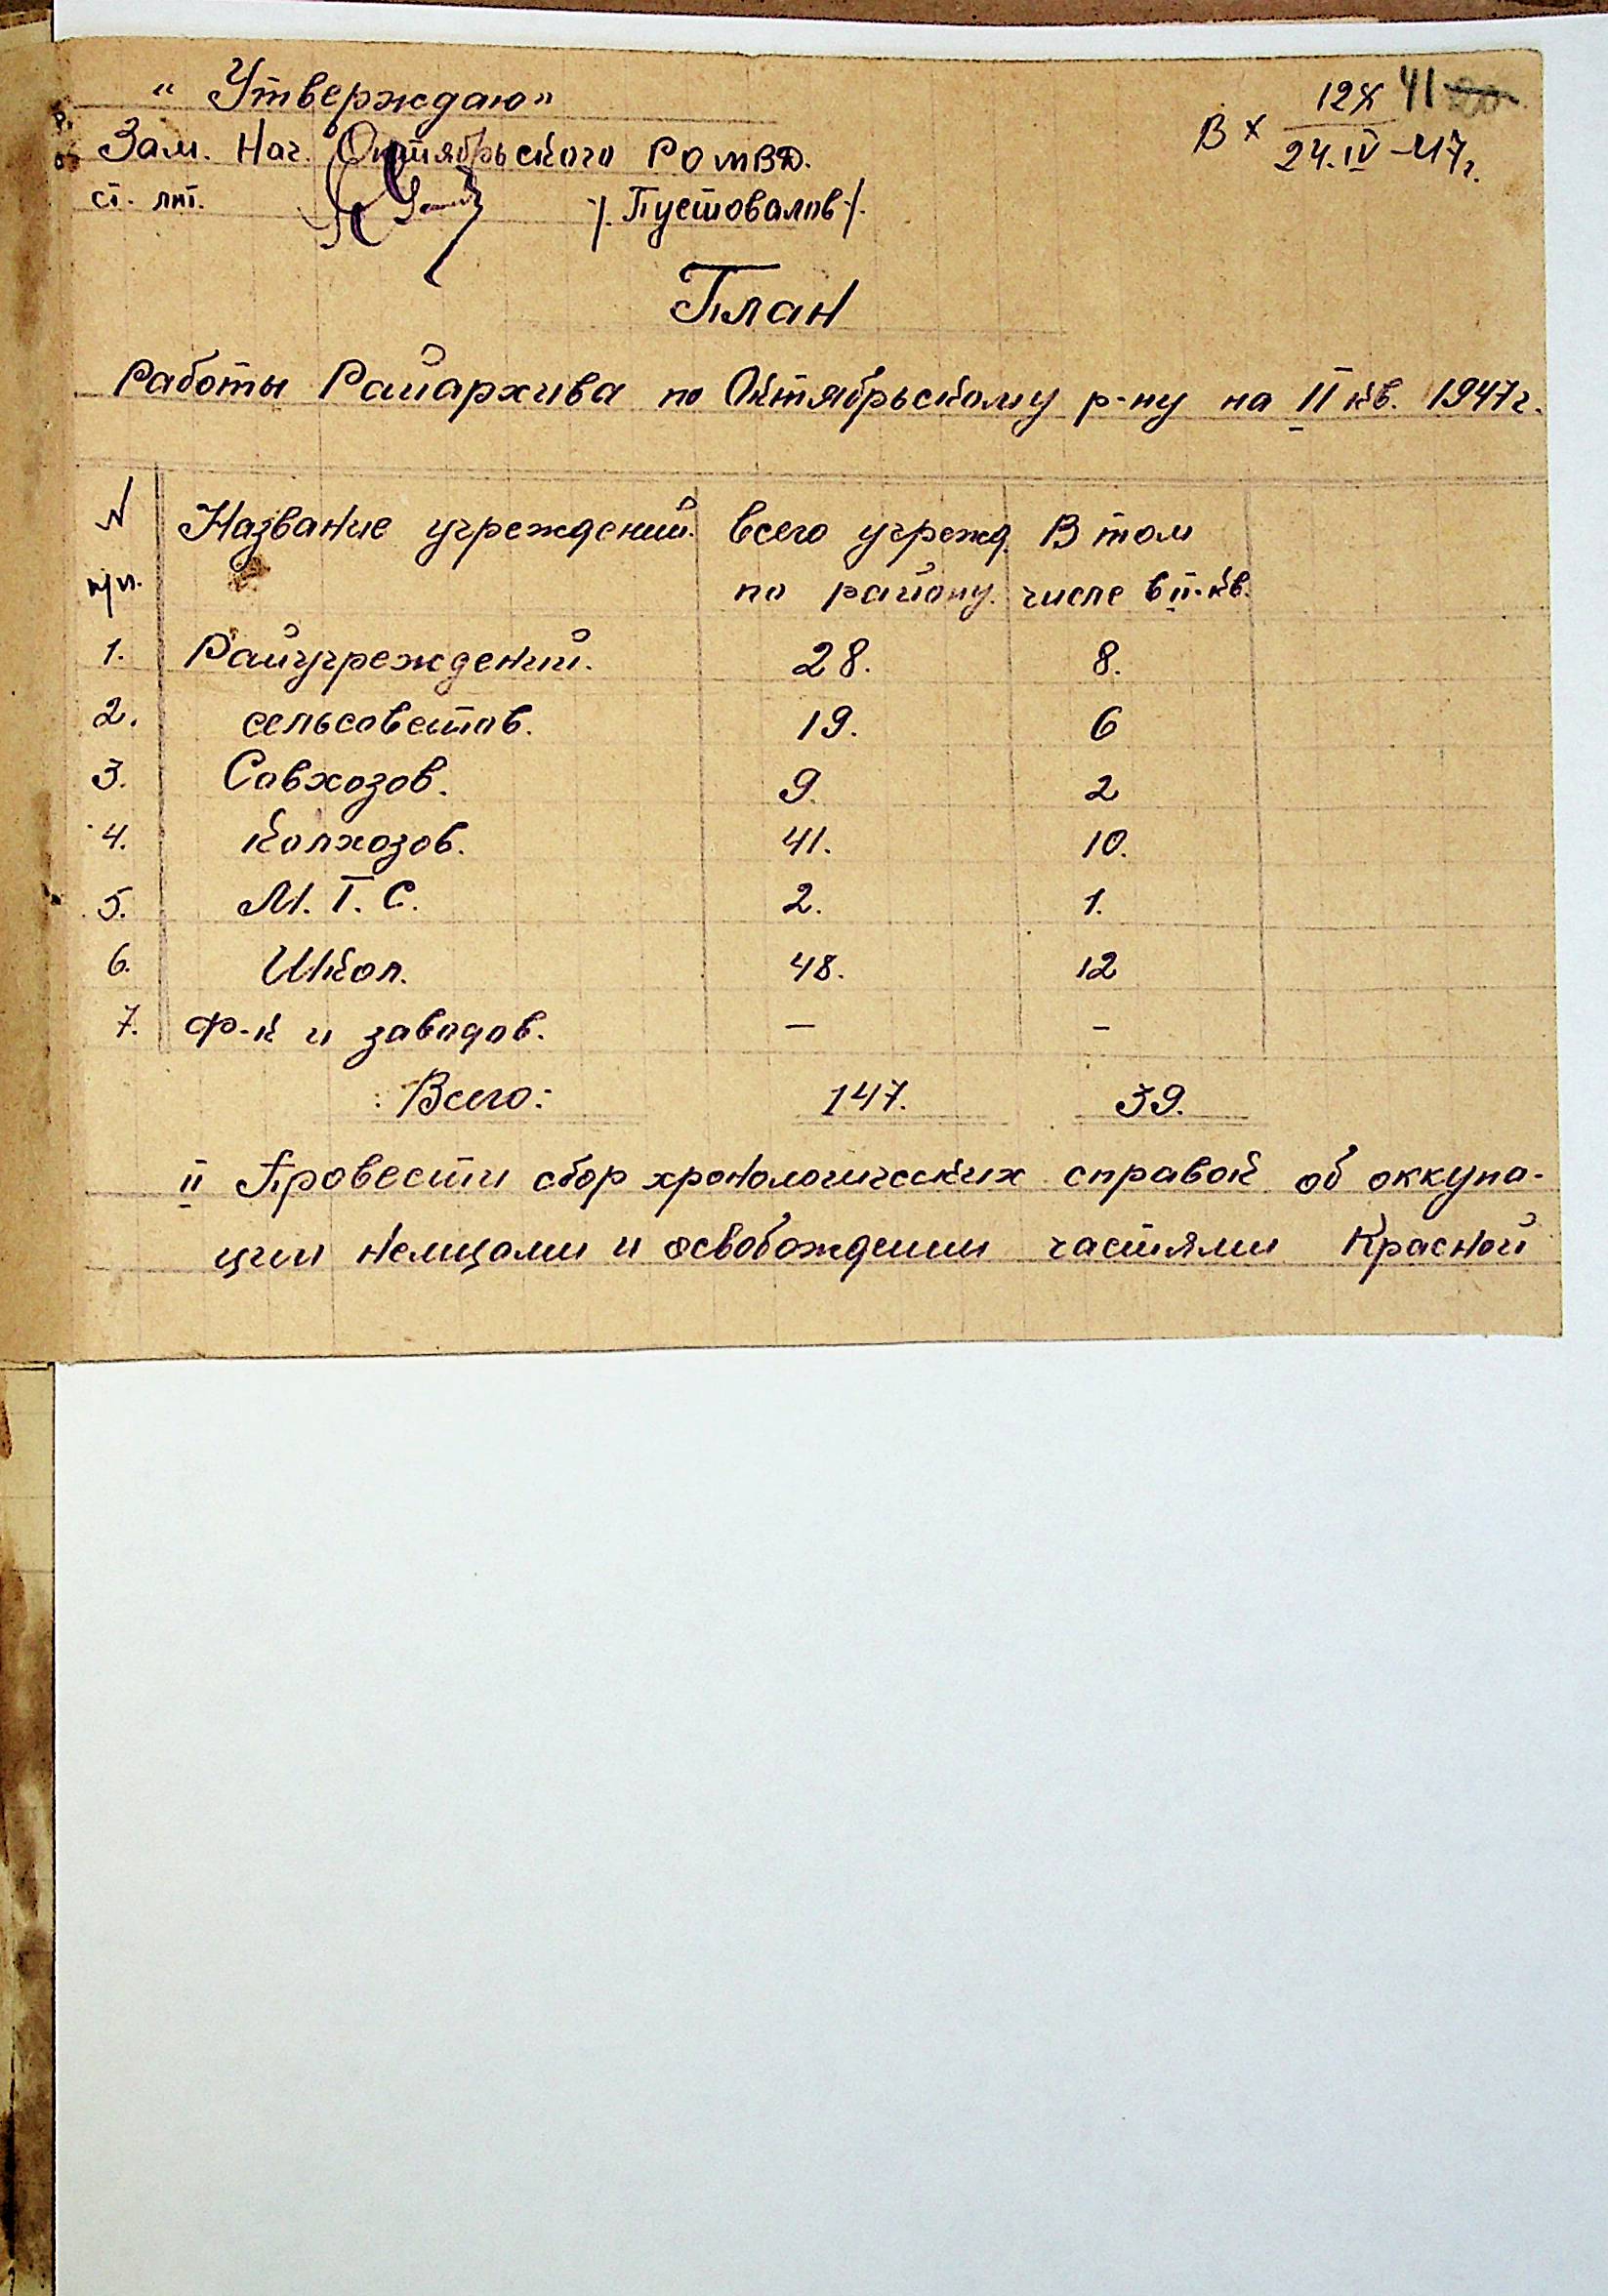 „Утверждаю"
Зам. Нач. Октябрьского РО МВД.
ст. лнт. /Пустовалов/.
Вх 24.IV-47г.
41
План
Работы Райархива по Октябрьскому р-ну на II кв. 1947г.
N п/п. Название учреждений. Всего учрежд. по району. В том числе в II-кв.
1. Райучреждений. 28. 8.
2. сельсоветов. 19. 6
3. Совхозов. 9. 2
4. Колхозов. 41. 10.
5. М.Т.С. 2. 1.
6. Школ. 48. 12
7. Ф-к и заводов. — –
Всего: 147. 39.
II Провести сбор хронологических справок об оккупа-
ции немцами и освобождении частями Красной